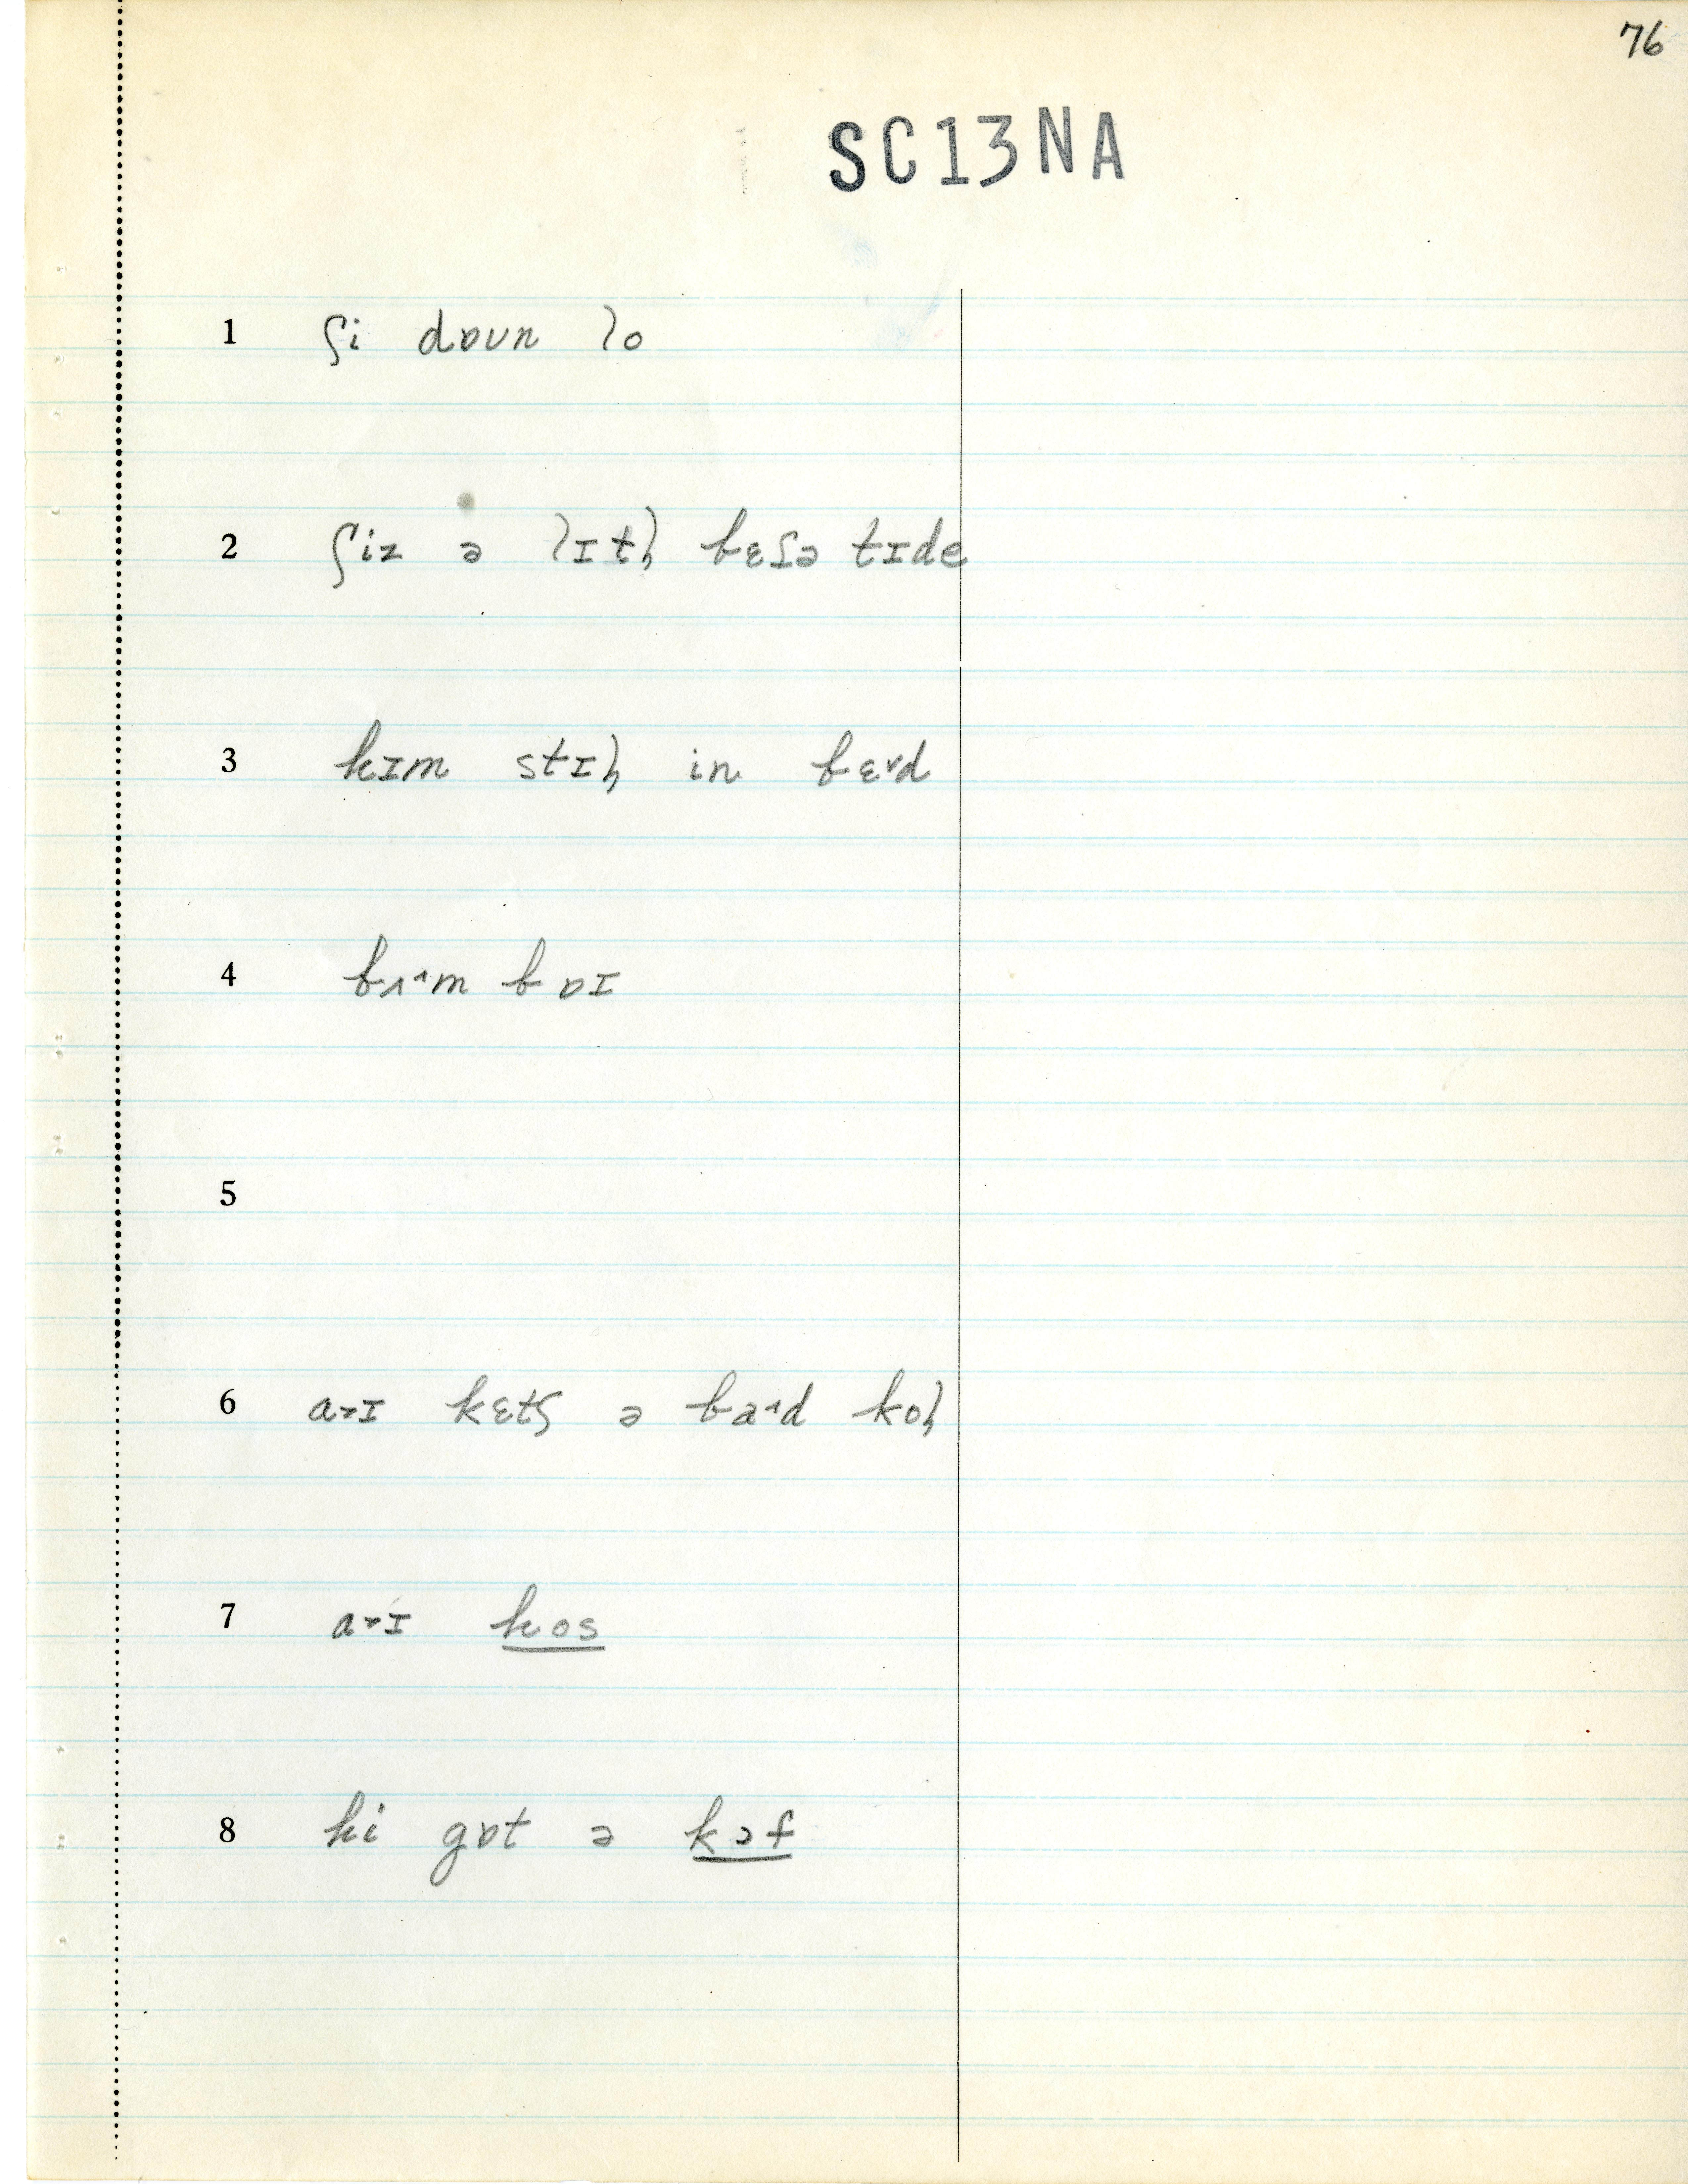 76
SC13NA
1 ʃi dɒʊn lo
2 ʃiz ə lɪtl̩ bɛʃə tɪde
3 kɪm stɪl̩ in bɛ˅d
4 bʌ˄m bɒɪ
5
6 a˃ɪ kɛtʃ ə ba˄d kol̩
7 a˃ɪ hos
8 hi gɒt ə kɔf